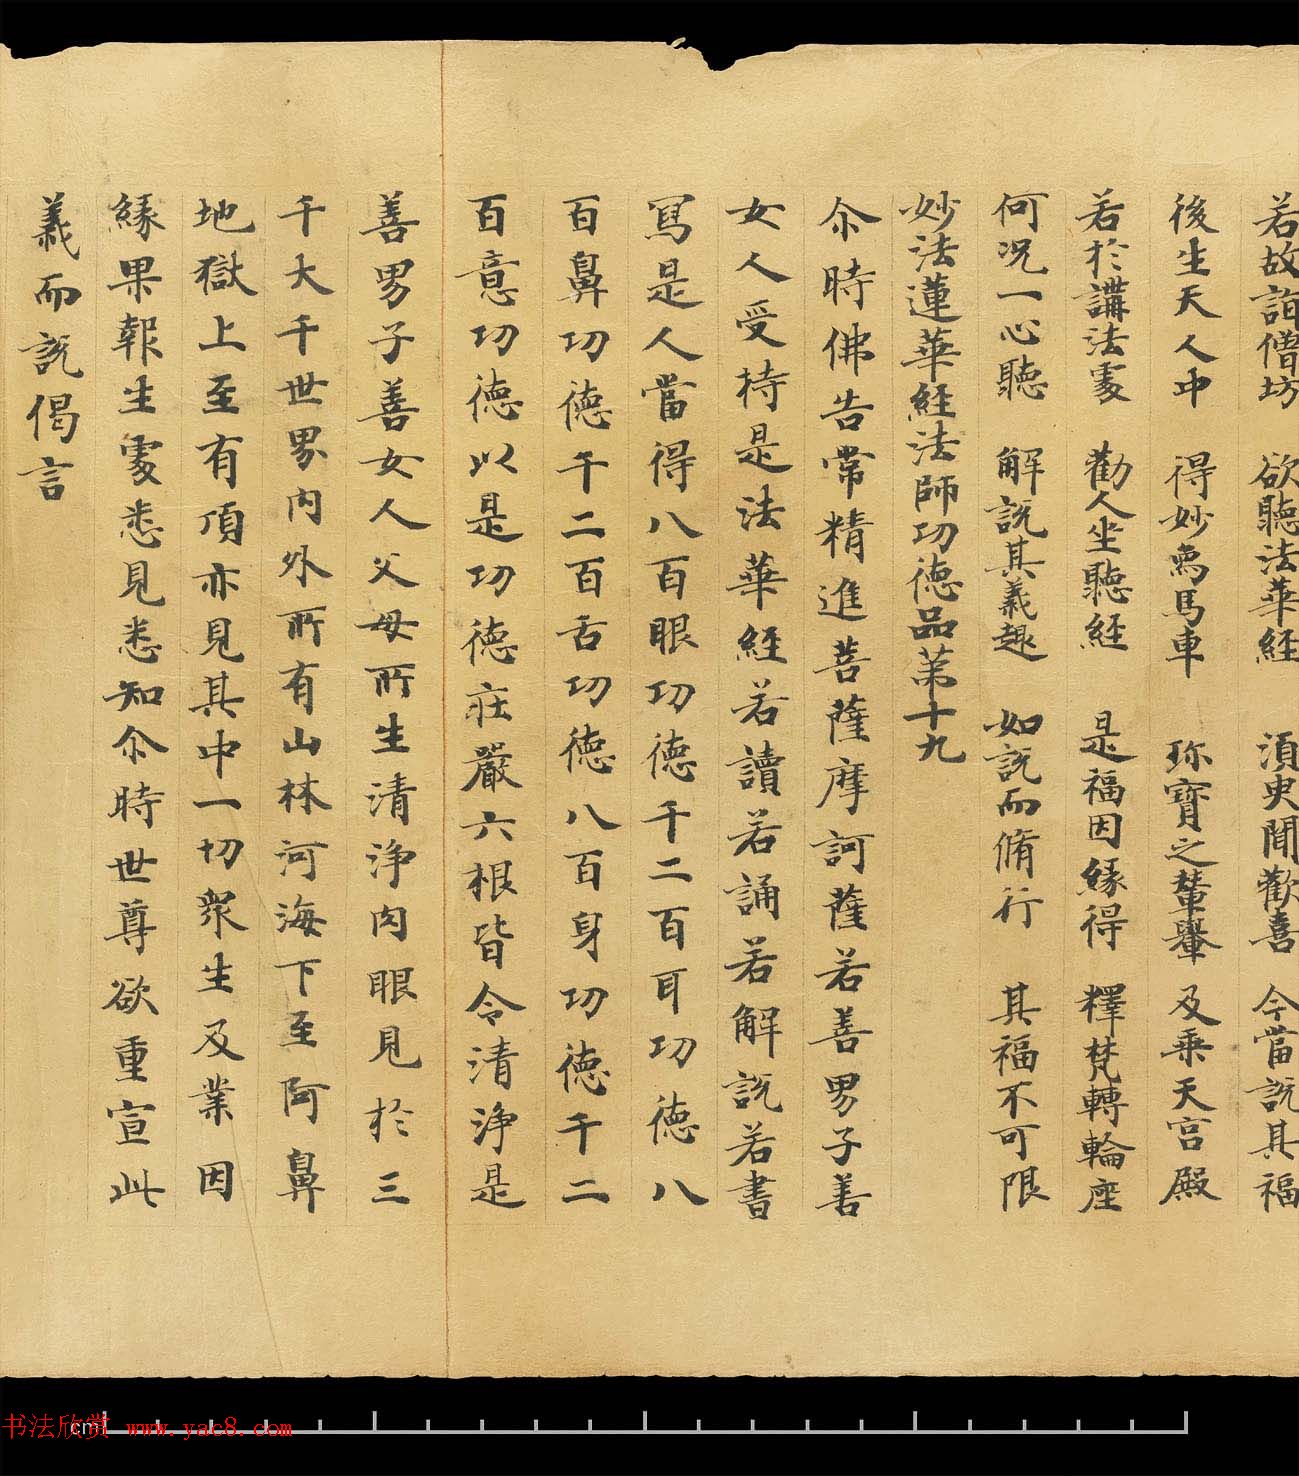 若故詣僧坊　欲聽法華經　須臾聞歡喜　今當說其福
後生天人中　得妙烏馬車　珍寶之輦轝　及乗天宮殿
若於講法處　勸人坐聽經　是福因縁得　釋梵轉輪座
何况一心聽　解說其義趣　如說而脩行　其福不可限
妙法蓮華經法師功徳品苐十九
尒時佛告常精進菩薩摩訶薩若善男子善
女人受持是法華經若讀若誦若解說若書
寫是人當得八百眼功徳千二百耳功徳八
百鼻功徳千二百舌功徳八百身功徳千二
百意功徳以是功徳莊嚴六根皆令清淨是
善男子善女人父母所生清淨肉眼見於三
千大千世界内外所有山林河海下至阿鼻
地獄上至有頂亦見其中一切衆生及業因
縁果報生處悉見悉知尒時世尊欲重宣此
義而說偈言
cm
书法欣赏 www.yac8.com